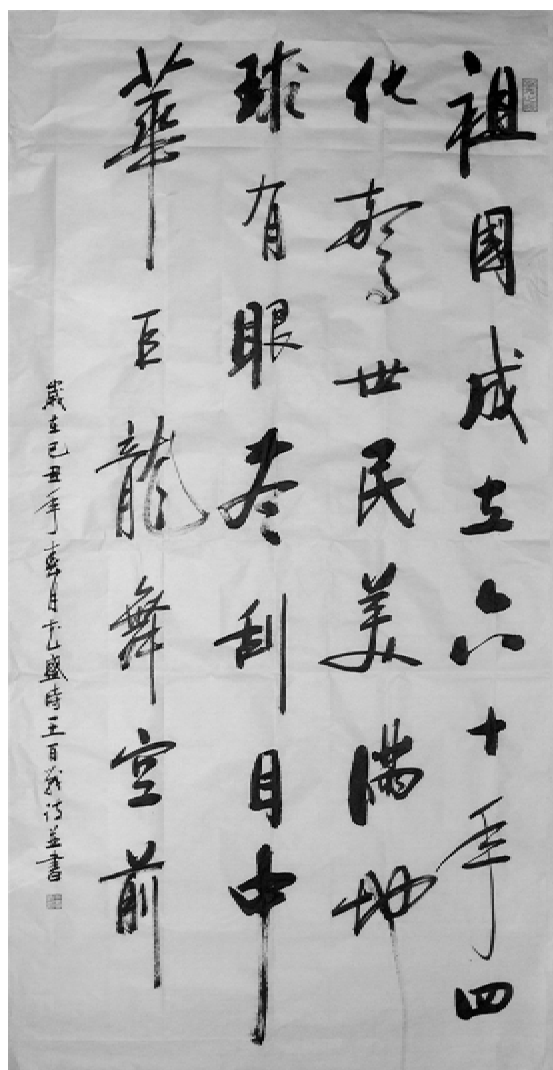 祖國成立六十年四
化驚世民美滿地
球有眼尽刮目中
華巨龍舞空前
歲在己丑年春月盛時王百戰诗並書